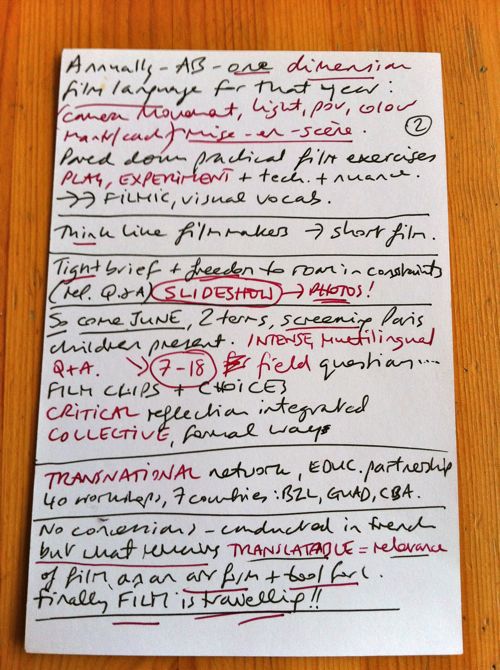 Annually - AB - one dimension
film language for that year:
camera movement, light, pov, colour
mask/cach/ mise-en-scène.
②
Pared down practical film exercises
PLAY, EXPERIMENT + tech. + nuance.
→→ FILMIC, visual vocab.
Think like filmmakers → short film.
Tight brief + freedom to roam in constraints
(rel. Q&A) SLIDESHOW → PHOTOS!
So come JUNE, 2 terms, screening Paris
children present. INTENSE, Multilingual
Q+A. 7-18 field questions....
FILM CLIPS + CHOICES
CRITICAL reflection integrated
COLLECTIVE, formal ways
TRANSNATIONAL network, EDUC. partnership
40 workshops, 7 countries: BZL, GUAD, CBA.
No concessions - conducted in french
but what remains TRANSLATABLE = relevance
of film as an art form + tool for l.
Finally FILM is travelling!!